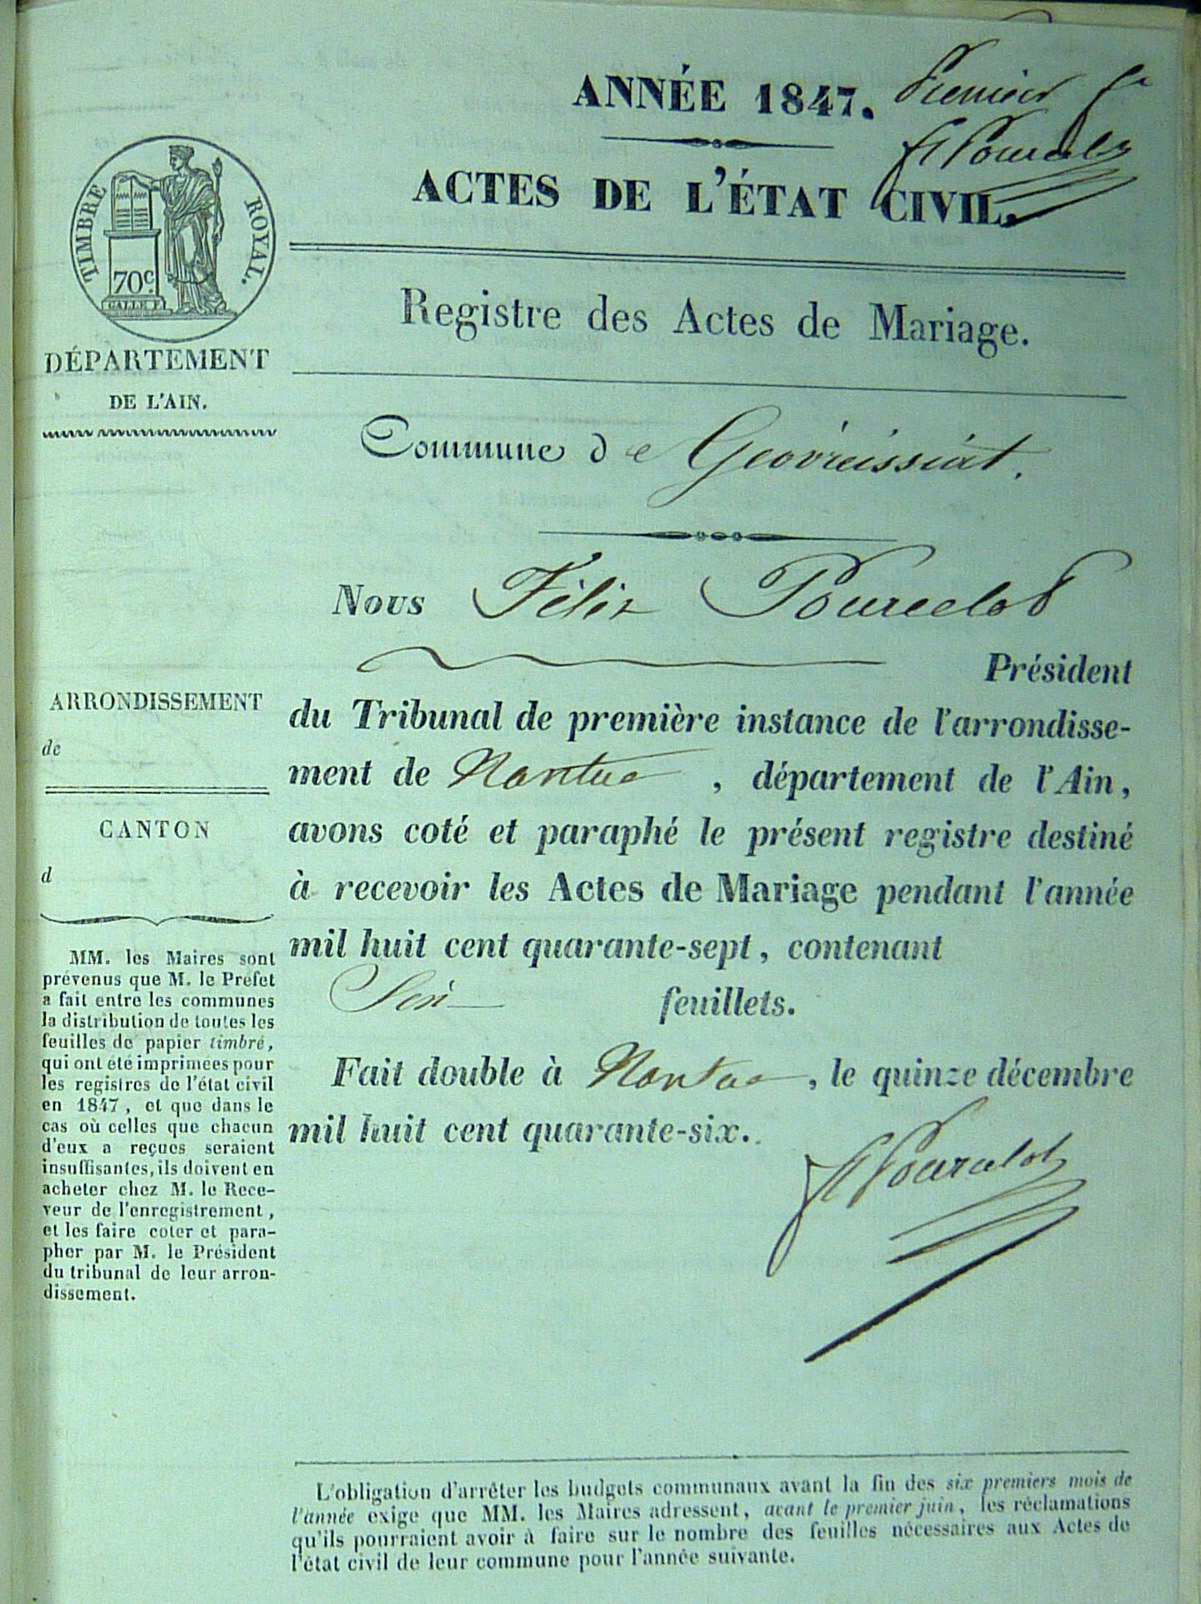 ANNÉE 1847.
Premier
ACTES DE L'ÉTAT CIVIL.
TIMBRE ROYAL.
70c.
Registre des Actes de Mariage.
DÉPARTEMENT
DE L'AIN.
Commune de Geovreissiat.
Nous Félix Pourcelot
Président
ARRONDISSEMENT
de
CANTON
d
du Tribunal de première instance de l'arrondisse-
ment de Nantua, département de l'Ain,
avons coté et paraphé le présent registre destiné
à recevoir les Actes de Mariage pendant l'année
mil huit cent quarante-sept, contenant
feuillets.
Fait double à Nantua, le quinze décembre
mil huit cent quarante-six.
MM. les Maires sont
prévenus que M. le Préfet
a fait entre les communes
la distribution de toutes les
feuilles de papier timbré,
qui ont été imprimées pour
les registres de l'état civil
en 1847, et que dans le
cas où celles que chacun
d'eux a reçues seraient
insuffisantes, ils doivent en
acheter chez M. le Rece-
veur de l'enregistrement,
et les faire coter et para-
pher par M. le Président
du tribunal de leur arron-
dissement.
L'obligation d'arrêter les budgets communaux avant la fin des six premiers mois de
l'année exige que MM. les Maires adressent, avant le premier juin, les réclamations
qu'ils pourraient avoir à faire sur le nombre des feuilles nécessaires aux Actes de
l'état civil de leur commune pour l'année suivante.